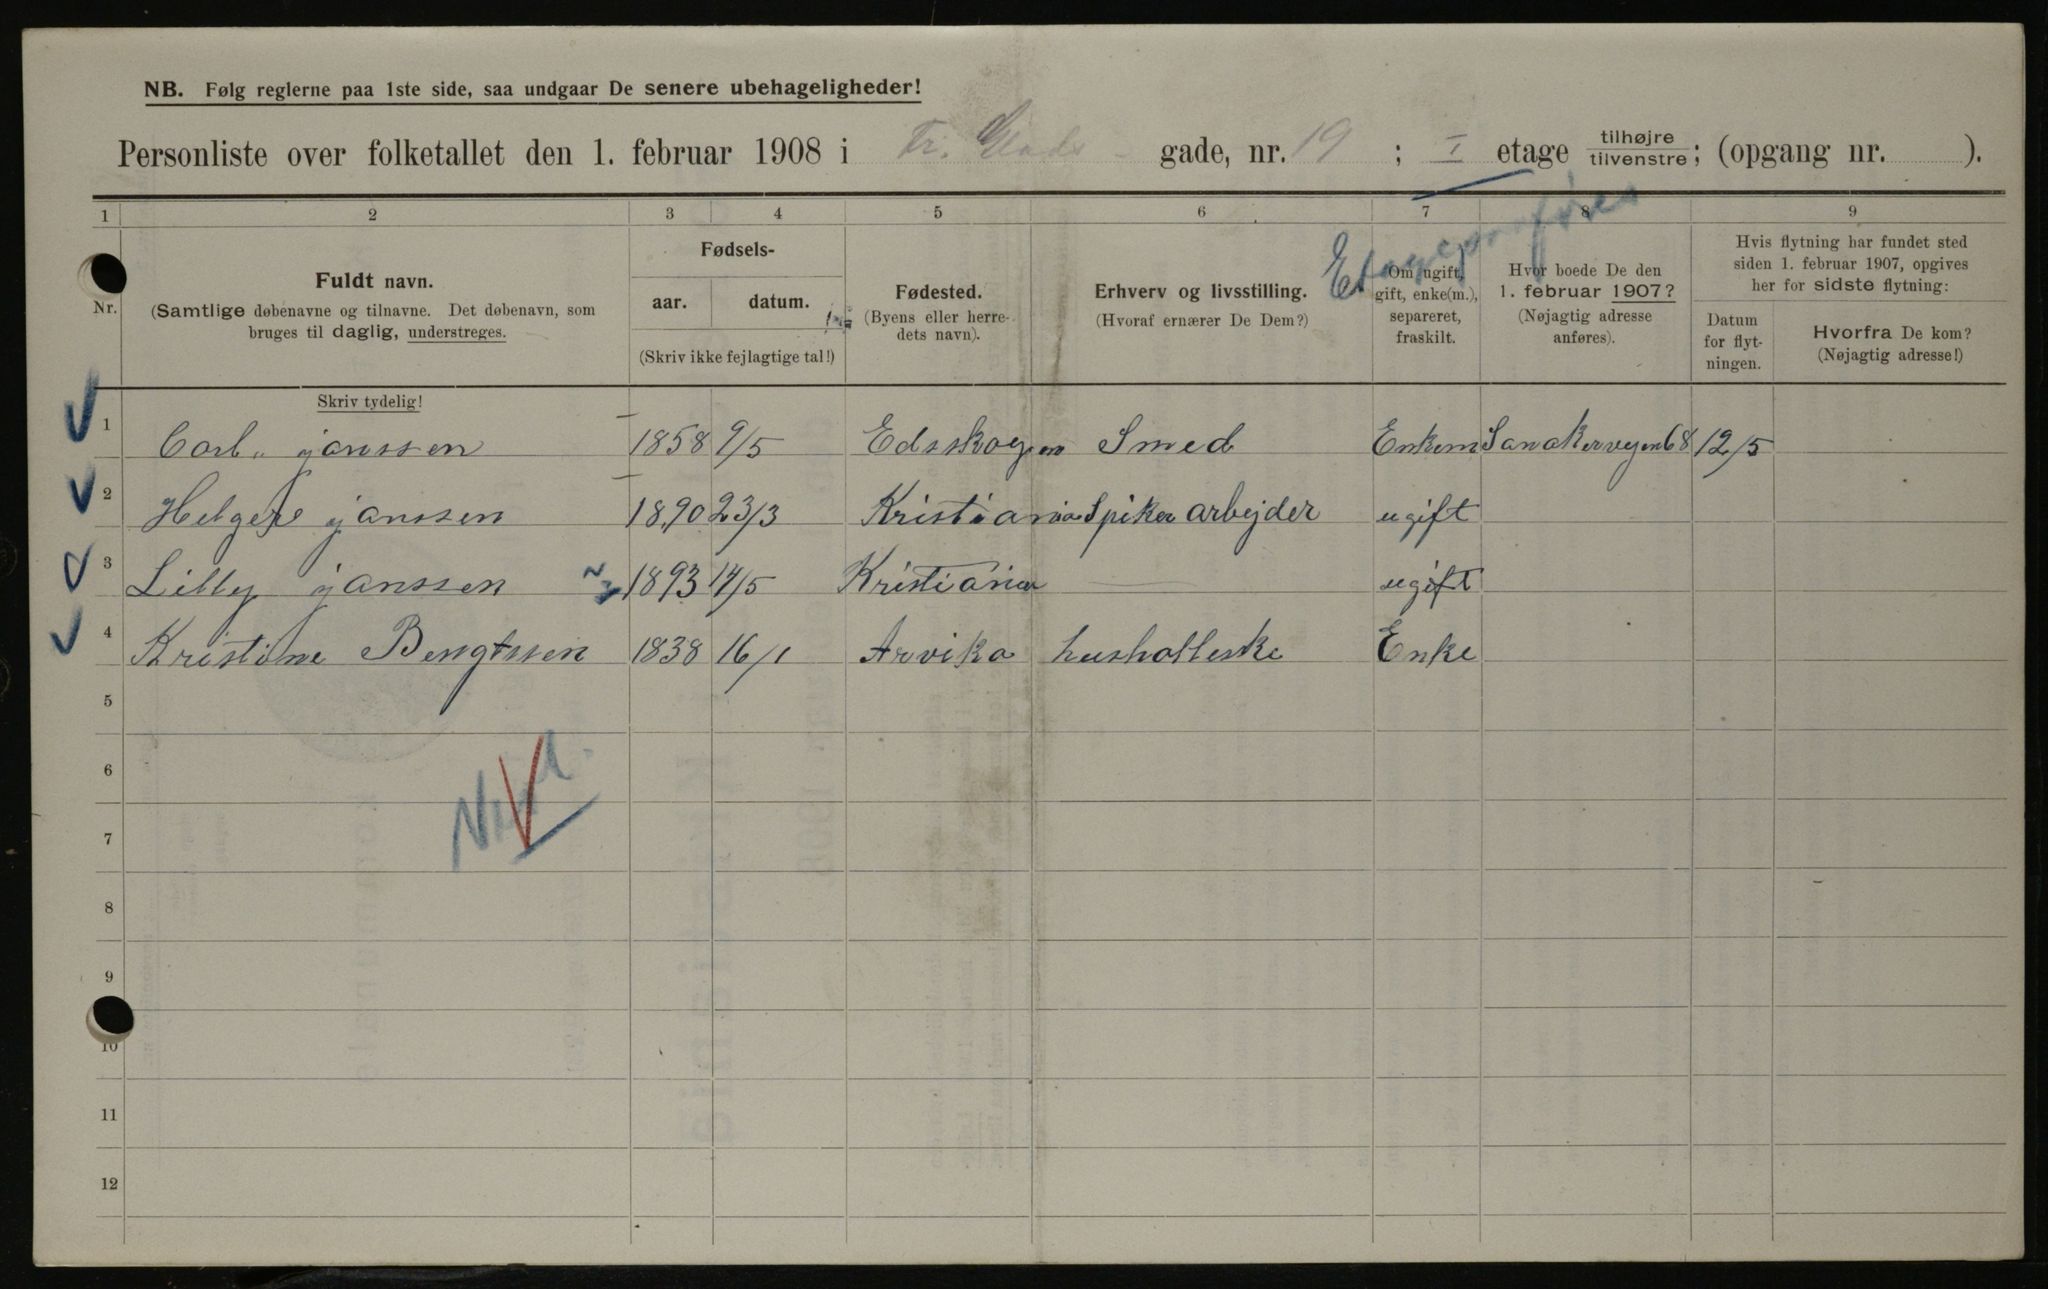 NB. Følg reglerne paa 1ste side, saa undgaar De senere ubehageligheder!
Personliste over folketallet den 1. februar 1908 i Fr. Glads gade, nr. 19 ; I etage tilhøjre/tilvenstre; (opgang nr. ).
1 2 3 4 5 6 7 8 9
Nr.
Fuldt navn.
(Samtlige døbenavne og tilnavne. Det døbenavn, som
bruges til daglig, understreges.
Skriv tydelig!
Fødsels-
aar. datum.
(Skriv ikke fejlagtige tal!)
Fødested.
(Byens eller herre-
dets navn).
Erhverv og livsstilling.
(Hvoraf ernærer De Dem?)
Om ugift,
gift, enke(m.),
separeret,
fraskilt.
Hvor boede De den
1. februar 1907?
(Nøjagtig adresse
anføres).
Hvis flytning har fundet sted
siden 1. februar 1907, opgives
her for sidste flytning:
Datum
for flyt-
ningen.
Hvorfra De kom?
(Nøjagtig adresse!)
1 Carl janssen 1858 9/5 Edsskogen Smed Enkem Sanakervejen 68 12/5
2 Helger janssen 1890 23/3 Kristiania Spiker arbejder ugift
3 Lilly janssen 1893 14/5 Kristiania — ugift
4 Kristine Bengtssen 1838 16/1 Arvika husholleske Enke
5
6
7
8
9
10
11
12